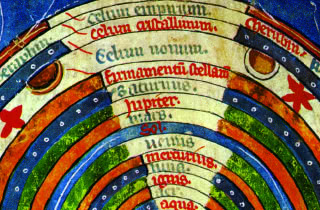 celum empireum
celum cristallinum.
Celum nonum.
cherubim.
firmamentũ stellatũ
Saturnus.
Jupiter.
mars.
Sol.
uenus
mercurius.
luna.
ignis.
aer.
aqua.